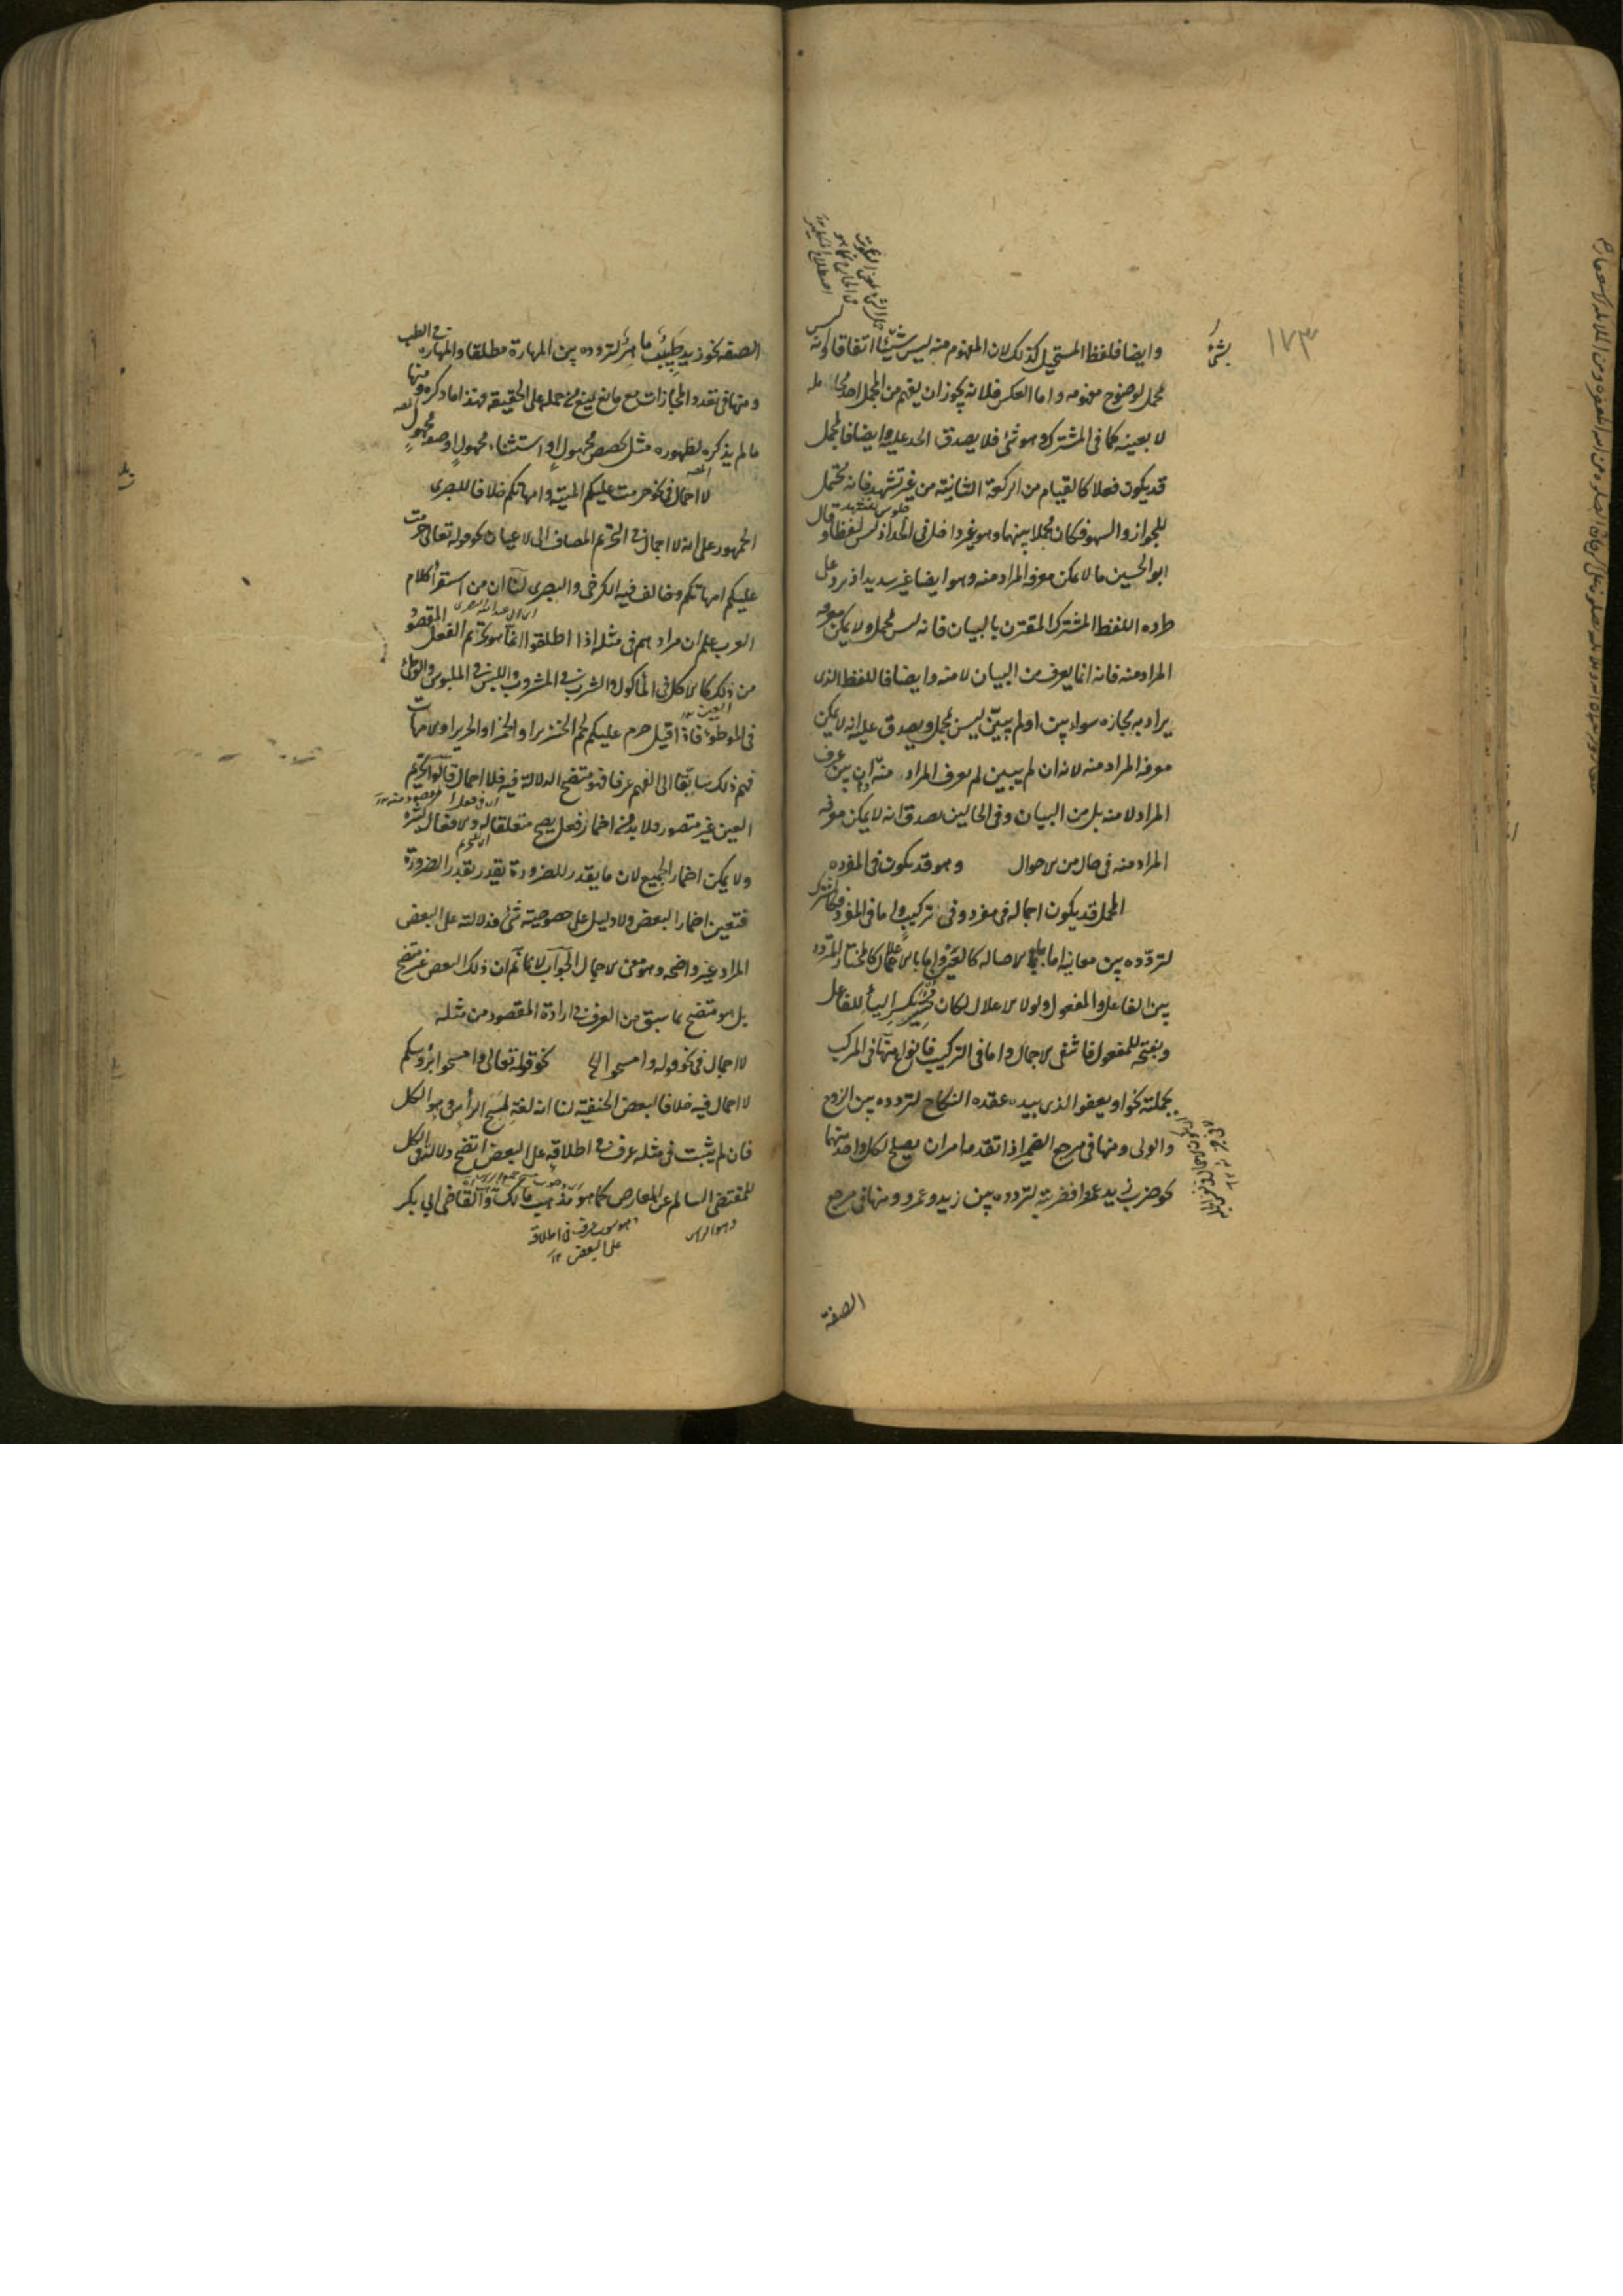 ١٧٣
وايضا فلفظ المستحيل كذلك لان المفهوم منه ليس شيئا اتفاقا وليس
بمجمل لوضوح مفهومه واما العكس فلانه يجوز ان يفهم من المجمل احد محامله
لا بعينه كما في المشترك وهو شئ فلا يصدق الحد عليه وايضا فالمجمل
قد يكون فعلا كالقيام من الركعة الثانية من غير تشهد فانه محتمل
للجواز والسهو فكان مجملا بينهما وهو غير داخل في الحد اذ ليس لفظا وقال
ابو الحسين ما لا يمكن معرفة المراد منه وهو ايضا غير سديد اذ يرد على
طرده اللفظ المشترك المقترن بالبيان فانه ليس بمجمل ولا يمكن معرفة
المراد منه فانه انما يعرف من البيان لا منه وايضا فاللفظ الذى
يراد به مجازه سواء بين او لم يبين ليس بمجمل ويصدق عليه انه لا يمكن
معرفة المراد منه لانه ان لم يبين لم يعرف المراد منه وان بين عرف
المراد لا منه بل من البيان وفي الحالين يصدق انه لا يمكن معرفة
المراد منه في حال من الاحوال وهو قد يكون في المفرد
المجمل قد يكون اجماله في مفرد وفي تركيب واما في المفرد فكالمشترك
لتردده بين معانيه اما بالاصالة كالعين واما بالاعلال كالمختار المتردد
بين الفاعل والمفعول ولولا الاعلال لكان مختير بكسر الياء للفاعل
وبفتحه للمفعول فانتفى الاجمال واما في التركيب فانواع منها في المركب
بجملته نحو او يعفو الذى بيده عقدة النكاح لتردده بين الزوج
والولى ومنها في مرجع الضمير اذا تقدمه امران يصلح لكل واحد منهما
نحو ضرب زيد عمروا فضربته لتردده بين زيد وعمرو ومنها في مرجع
الصفة
الصفة نحو زيد طبيب ماهر لتردده بين المهارة مطلقا والمهارة في الطب
ومنها في تعدد المجازات مع مانع يمنع من حمله على الحقيقة فهذا ما ذكره ومنها
ما لم يذكره لظهوره مثل تخصيص مجهول او استثناء مجهول او صفة مجهولة
لا اجمال في نحو حرمت عليكم الميتة وامهاتكم خلافا للبصرى
الجمهور على انه لا اجمال في التحريم المضاف الى الاعيان نحو قوله تعالى حرمت
عليكم امهاتكم وخالف فيه الكرخى والبصرى لنا ان من استقرأ كلام
العرب علم ان مرادهم في مثله اذا اطلقوا انما هو تحريم الفعل المقصود
من ذلك كالاكل في المأكول والشرب في المشروب واللبس في الملبوس والوطئ
في الموطوء فاذا قيل حرم عليكم لحم الخنزير او الخمر او الحرير او الامهات
فهم ذلك سابقا الى الفهم عرفا فهو متضح الدلالة فيه فلا اجمال قالوا تحريم
العين غير متصور ولا بد من اضمار فعل يصح متعلقا له والافعال كثيرة
ولا يمكن اضمار الجميع لان ما يقدر للضرورة يقدر بقدر الضرورة
فتعين اضمار البعض ولا دليل على خصوصية شئ فدلالته على البعض
المراد غير واضحة وهو معنى الاجمال الجواب لا نم ان ذلك البعض غير متضح
بل هو متضح بما سبق من العرف في ارادة المقصود من مثله
لا اجمال في نحو قوله وامسحوا الخ نحو قوله تعالى وامسحوا برؤسكم
لا اجمال فيه خلافا لبعض الحنفية لنا انه لغة لمسح الرأس وهو الكل
فان لم يثبت في مثله عرف في اطلاقه على البعض اتضح دلالته في الكل
للمقتضى السالم عن المعارض كما هو مذهب مالك والقاضى ابى بكر